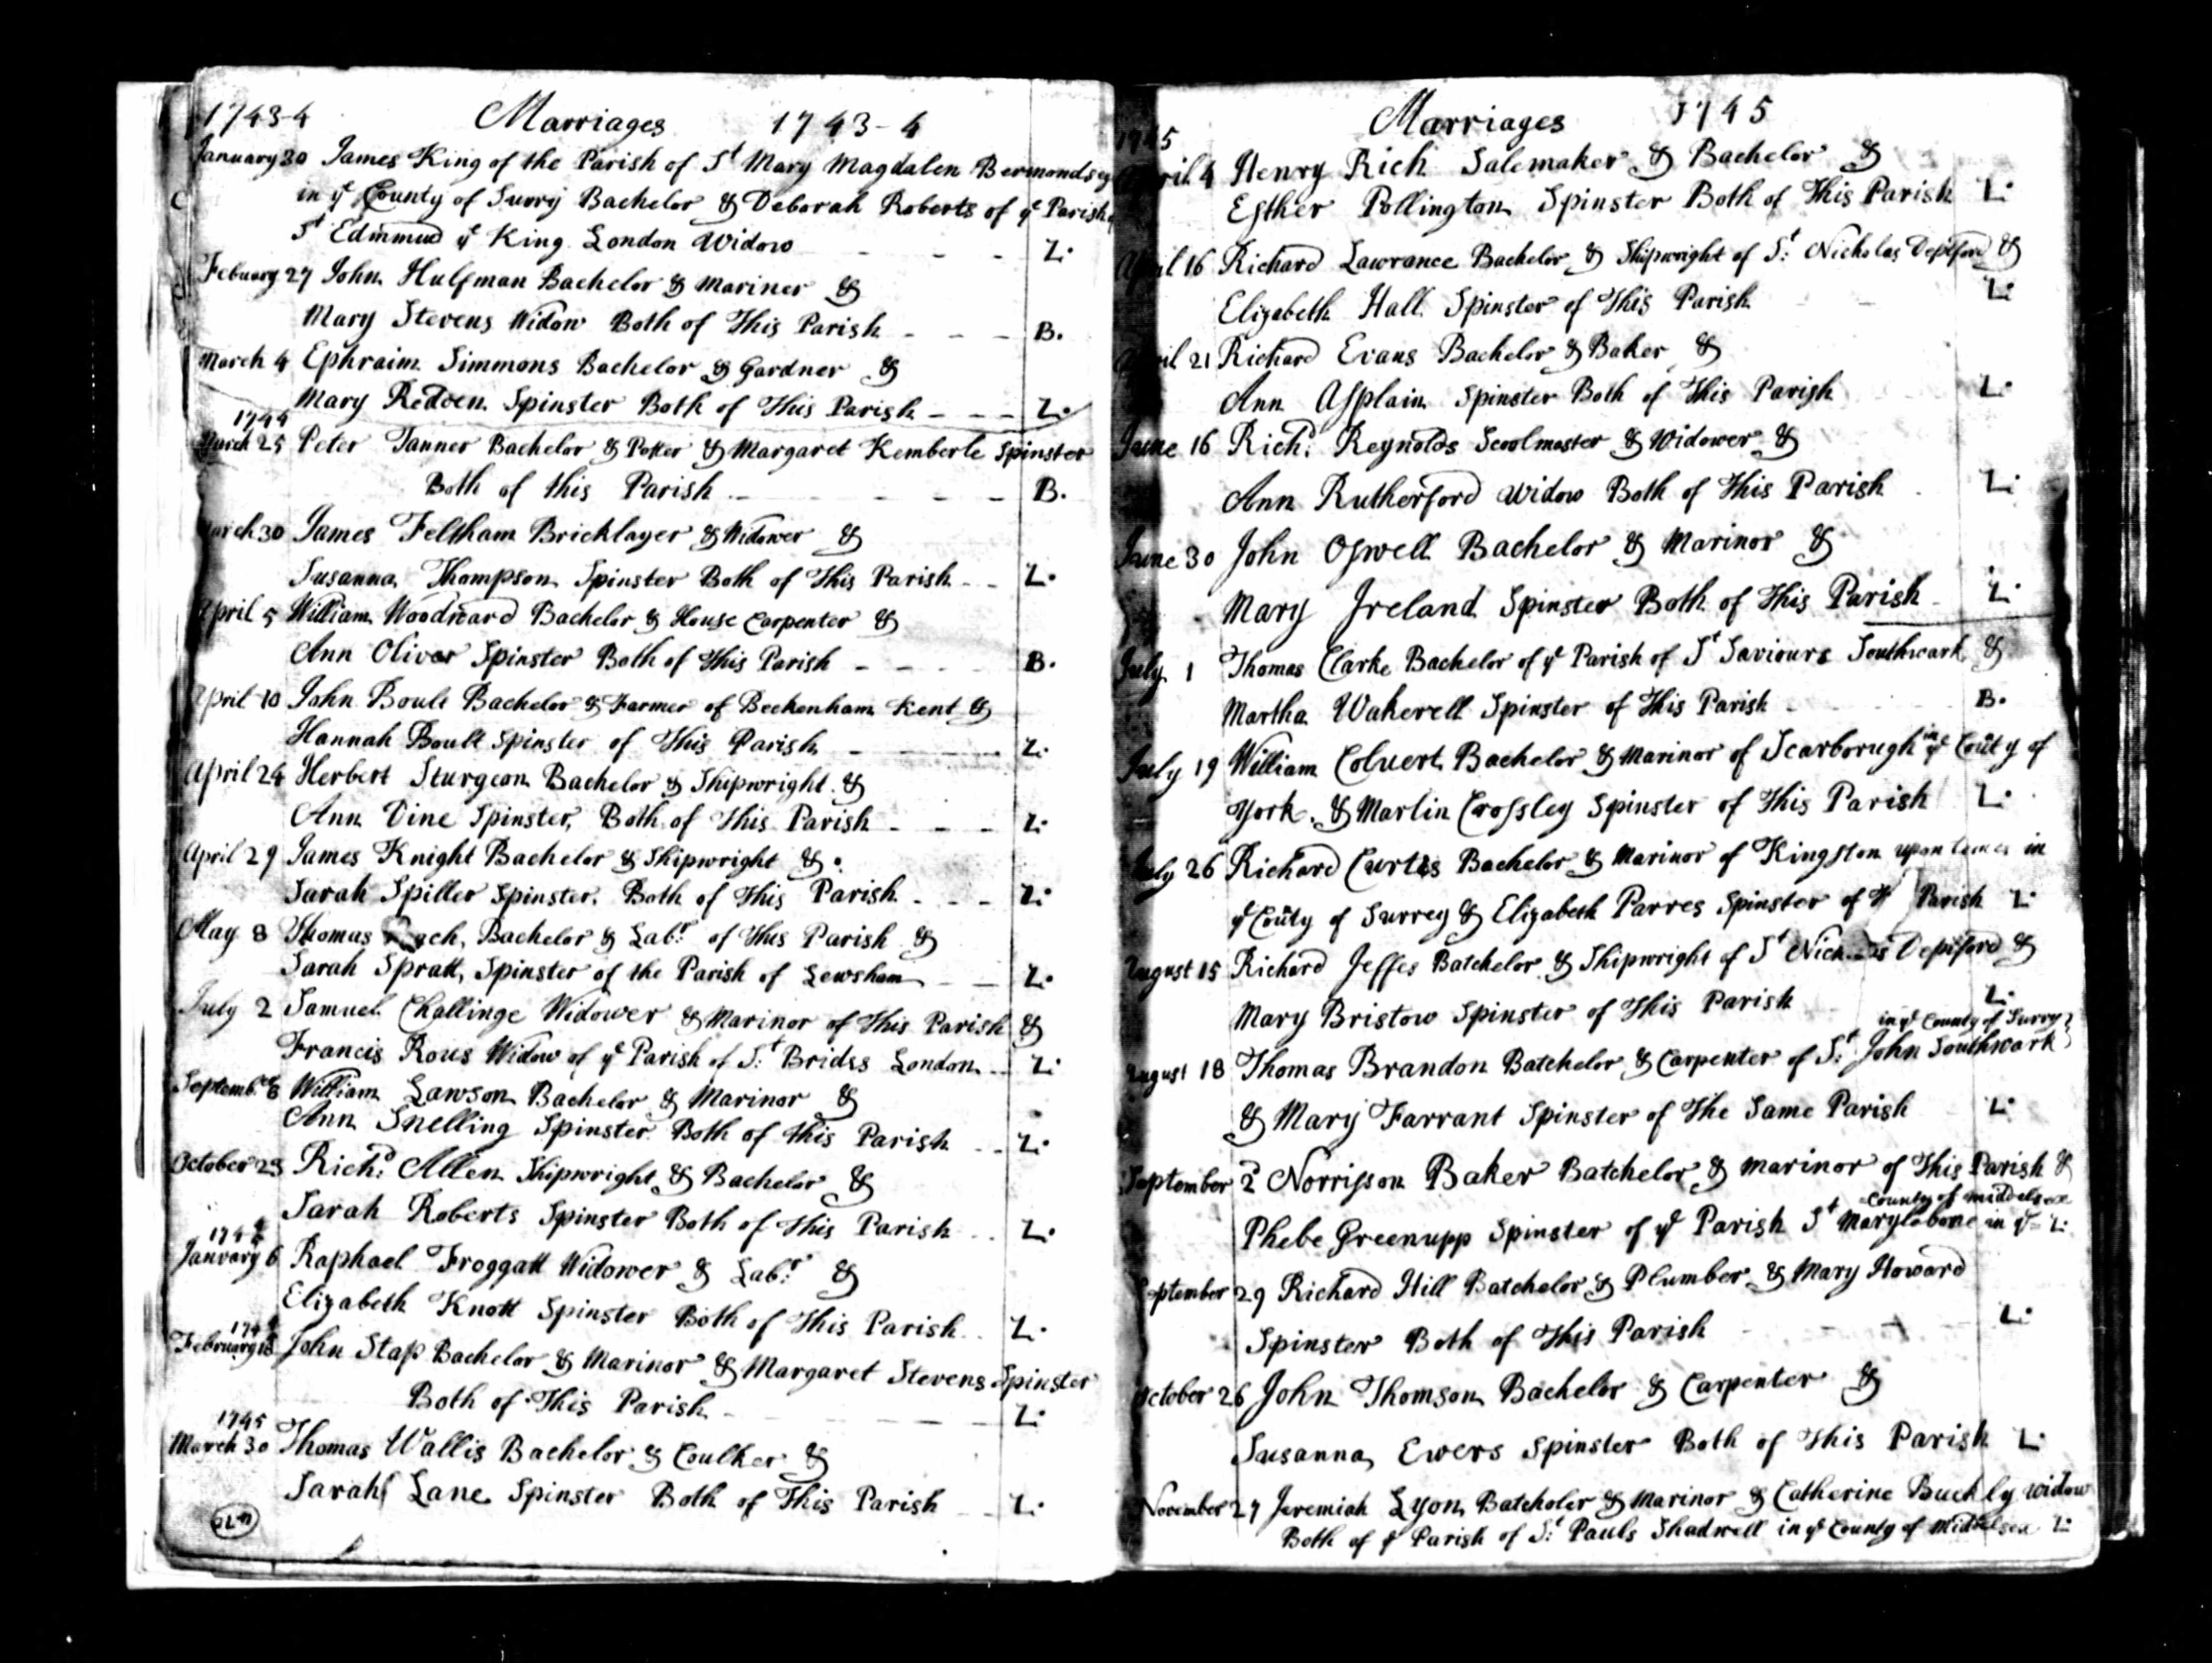 1743-4 Marriages 1743-4
January 30 James King of the Parish of St Mary Magdalen Bermondsey
in ye County of Surry Bachelor & Deborah Roberts of ye Parish
St Edmmud ye King London Widow - - - L.
Febuary 27 John Hulfman Bachelor & Mariner &
Mary Stevens Widow Both of This Parish - - - B.
March 4 Ephraim Simmons Bachelor & Gardner &
Mary Redven Spinster Both of This Parish - - - L.
1744
March 25 Peter Tanner Bachelor & Potter & Margaret Kemberle Spinster
Both of this Parish - - - - B.
March 30 James Feltham Bricklayer & Widower &
Susanna Thompson Spinster Both of This Parish - - L.
April 5 William Woodward Bachelor & House Carpenter &
Ann Oliver Spinster Both of This Parish - - - - B.
April 10 John Boult Bachelor & Farmer of Beckenham Kent &
Hannah Boult Spinster of This Parish - - - L.
April 24 Herbert Sturgeon Bachelor & Shipwright &
Ann Vine Spinster, Both of This Parish - - - L.
April 29 James Knight Bachelor & Shipwright &
Sarah Spiller Spinster. Both of This Parish - - - L.
May 8 Thomas Bachelor & Labr. of This Parish &
Sarah Spratt, Spinster of the Parish of Lewsham - - L.
July 2 Samuel Challinge Widower & Marinor of This Parish &
Francis Rous Widow of ye Parish of St. Brides London - - L.
Septembr. 8 William Lawson Bachelor & Marinor &
Ann Snelling Spinster Both of this Parish - - L.
October 23 Richd. Allen Shipwright & Bachelor &
Sarah Roberts Spinster Both of This Parish - - L.
January 6 Raphael Froggatt Widower & Labr. &
Elizabeth Knott Spinster Both of This Parish - - L.
February John Stap Bachelor & Marinor & Margaret Stevens Spinster
Both of This Parish - - - - L.
1745
March 30 Thomas Wallis Bachelor & Coulker &
Sarah Lane Spinster Both of This Parish - - L.
Marriages 1745
1745
April 4 Henry Rich Salemaker & Bachelor &
Esther Pollington Spinster Both of This Parish L.
April 16 Richard Lawrance Bachelor & Shipwright of St. Nicholas Deptford &
Elizabeth Hall Spinster of This Parish - - L.
April 21 Richard Evans Bachelor & Baker &
Ann Asplain Spinster Both of This Parish L.
June 16 Richd. Reynolds Scoolmaster & Widower &
Ann Rutherford Widow Both of This Parish L.
June 30 John Oswell Bachelor & Marinor &
Mary Ireland Spinster Both of This Parish - L.
July 1 Thomas Clarke Bachelor of ye Parish of St Saviours Southwark &
Martha Wakerell Spinster of This Parish - B.
July 19 William Coluert Bachelor & Marinor of Scarborough in ye Couty of
York. & Martin Crossley Spinster of This Parish L.
July 26 Richard Curtis Bachelor & Marinor of Kingston upon in
ye Couty of Surrey & Elizabeth Parres Spinster of Parish L.
August 15 Richard Jeffes Batchelor & Shipwright of St Deptford &
Mary Bristow Spinster of This Parish L.
in ye County of Surry
August 18 Thomas Brandon Batchelor & Carpenter of St. John Southwark
& Mary Farrant Spinster of The Same Parish L.
September 2 Norrisson Baker Batchelor & marinor of This Parish &
County of middelsex
Phebe Greenupp Spinster of ye Parish St Marylabone in ye L.
September 29 Richard Hill Batchelor & Plumber & Mary Howard
Spinster Both of This Parish - - L.
October 26 John Thomson Bachelor & Carpenter &
Susanna Ewers Spinster Both of This Parish L.
November 27 Jeremiah Lyon Batcholer & Marinor & Catherine Buckly widow
Both of ye Parish of St. Pauls Shadwell in ye County of Middelsex L.